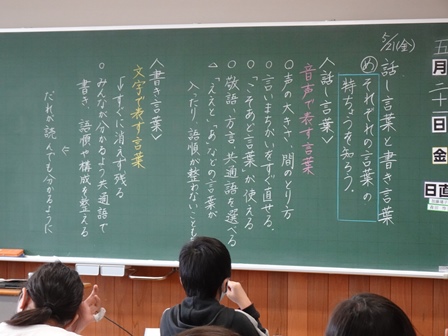 五月二十一日金
日直
5/21(金)
話し言葉と書き言葉
め それぞれの言葉の
特ちょうを知ろう。
〈話し言葉〉
音声で表す言葉
○声の大きさ、間のとり方
○言いまちがいをすぐ直せる。
○「こそあど言葉」が使える
○敬語・方言、共通語を選べる
△「ええと」「あ」などの言葉が
入ったり、語順が整わないことも
〈書き言葉〉
文字で表す言葉
↓すぐに消えず残る
○みんなが分かるよう共通語で
書き、語順や構成を整える
だれが読んでも分かるように